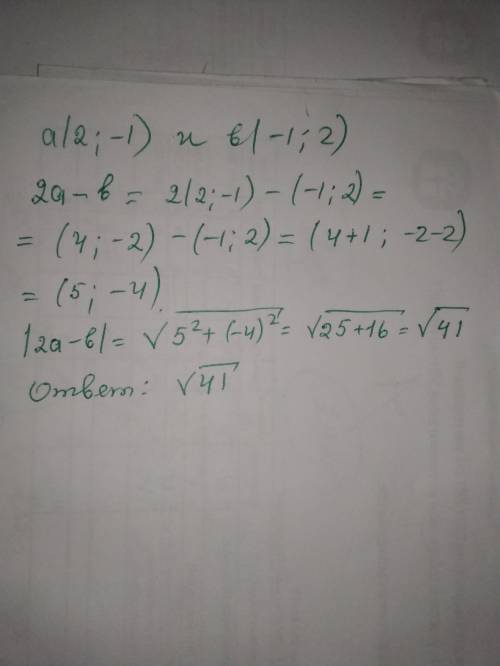 a(2; -1) и b(-1; 2)
2a - b = 2(2; -1) - (-1; 2) =
= (4; -2) - (-1; 2) = (4+1; -2-2)
= (5; -4).
|2a - b| = √(5² + (-4)²) = √(25+16) = √41
Ответ: √41